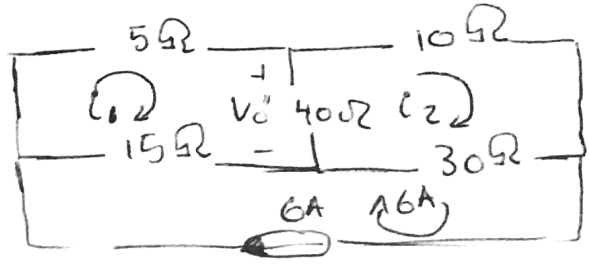 5Ω 10Ω
+
i₁ Vo" 40Ω i₂
15Ω - 30Ω
6A 6A